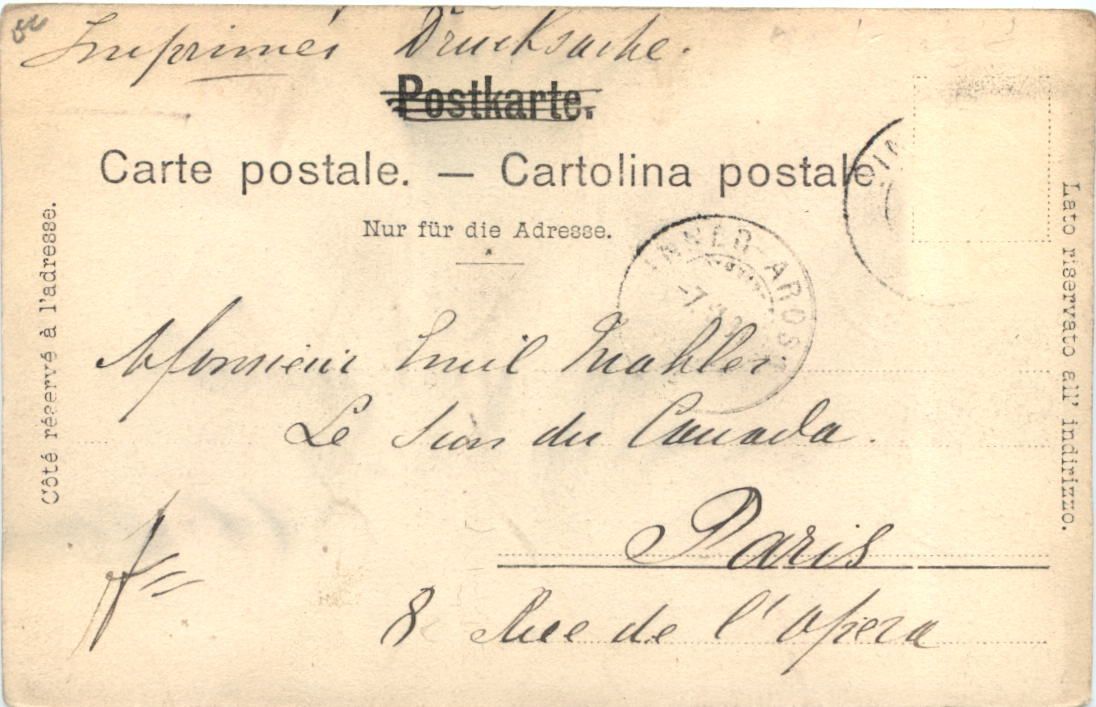 Imprimés Drucksache.
Postkarte.
Carte postale. — Cartolina postale
Nur für die Adresse.
Côté réservé à l'adresse.
Lato riservato all' indirizzo.
INNER-AROSA
Monsieur Emil Mahler
Le Sun du Canada.
Paris
8 Rue de l'opera